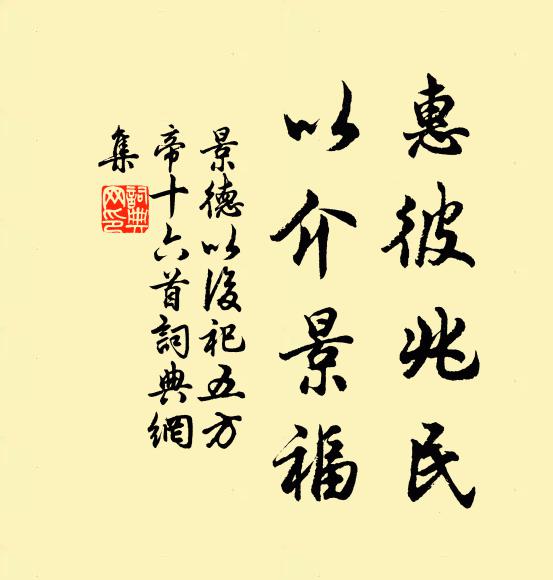 惠彼兆民
以介景福
景德以後祀五方
帝十六首詞典網
集
詞典
网印